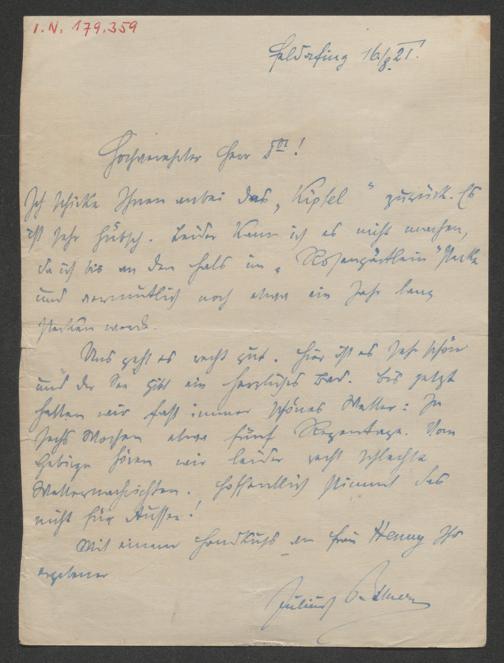 I.N. 179.359
Feldafing 16/8 21.
Hochverehrter Herr Dr!
Ich schicke Ihnen anbei das „Kipfel" zurück. Es
ist sehr hübsch. Leider kann ich es nicht machen,
da ich bis an den Hals im „Rosengärtlein" stecke
und vermutlich noch etwa ein Jahr lang
stecken werde.
Uns geht es recht gut. Hier ist es sehr schön
und der See gibt ein herrliches Bad. Bis jetzt
hatten wir fast immer schönes Wetter: In
sechs Wochen etwa fünf Regentage. Vom
Gebirge hören wir leider recht schlechte
Wetternachrichten. Hoffentlich stimmt das
nicht für Aussee!
Mit einem Handkuss an Frau Henny Ihr
ergebener
Julius